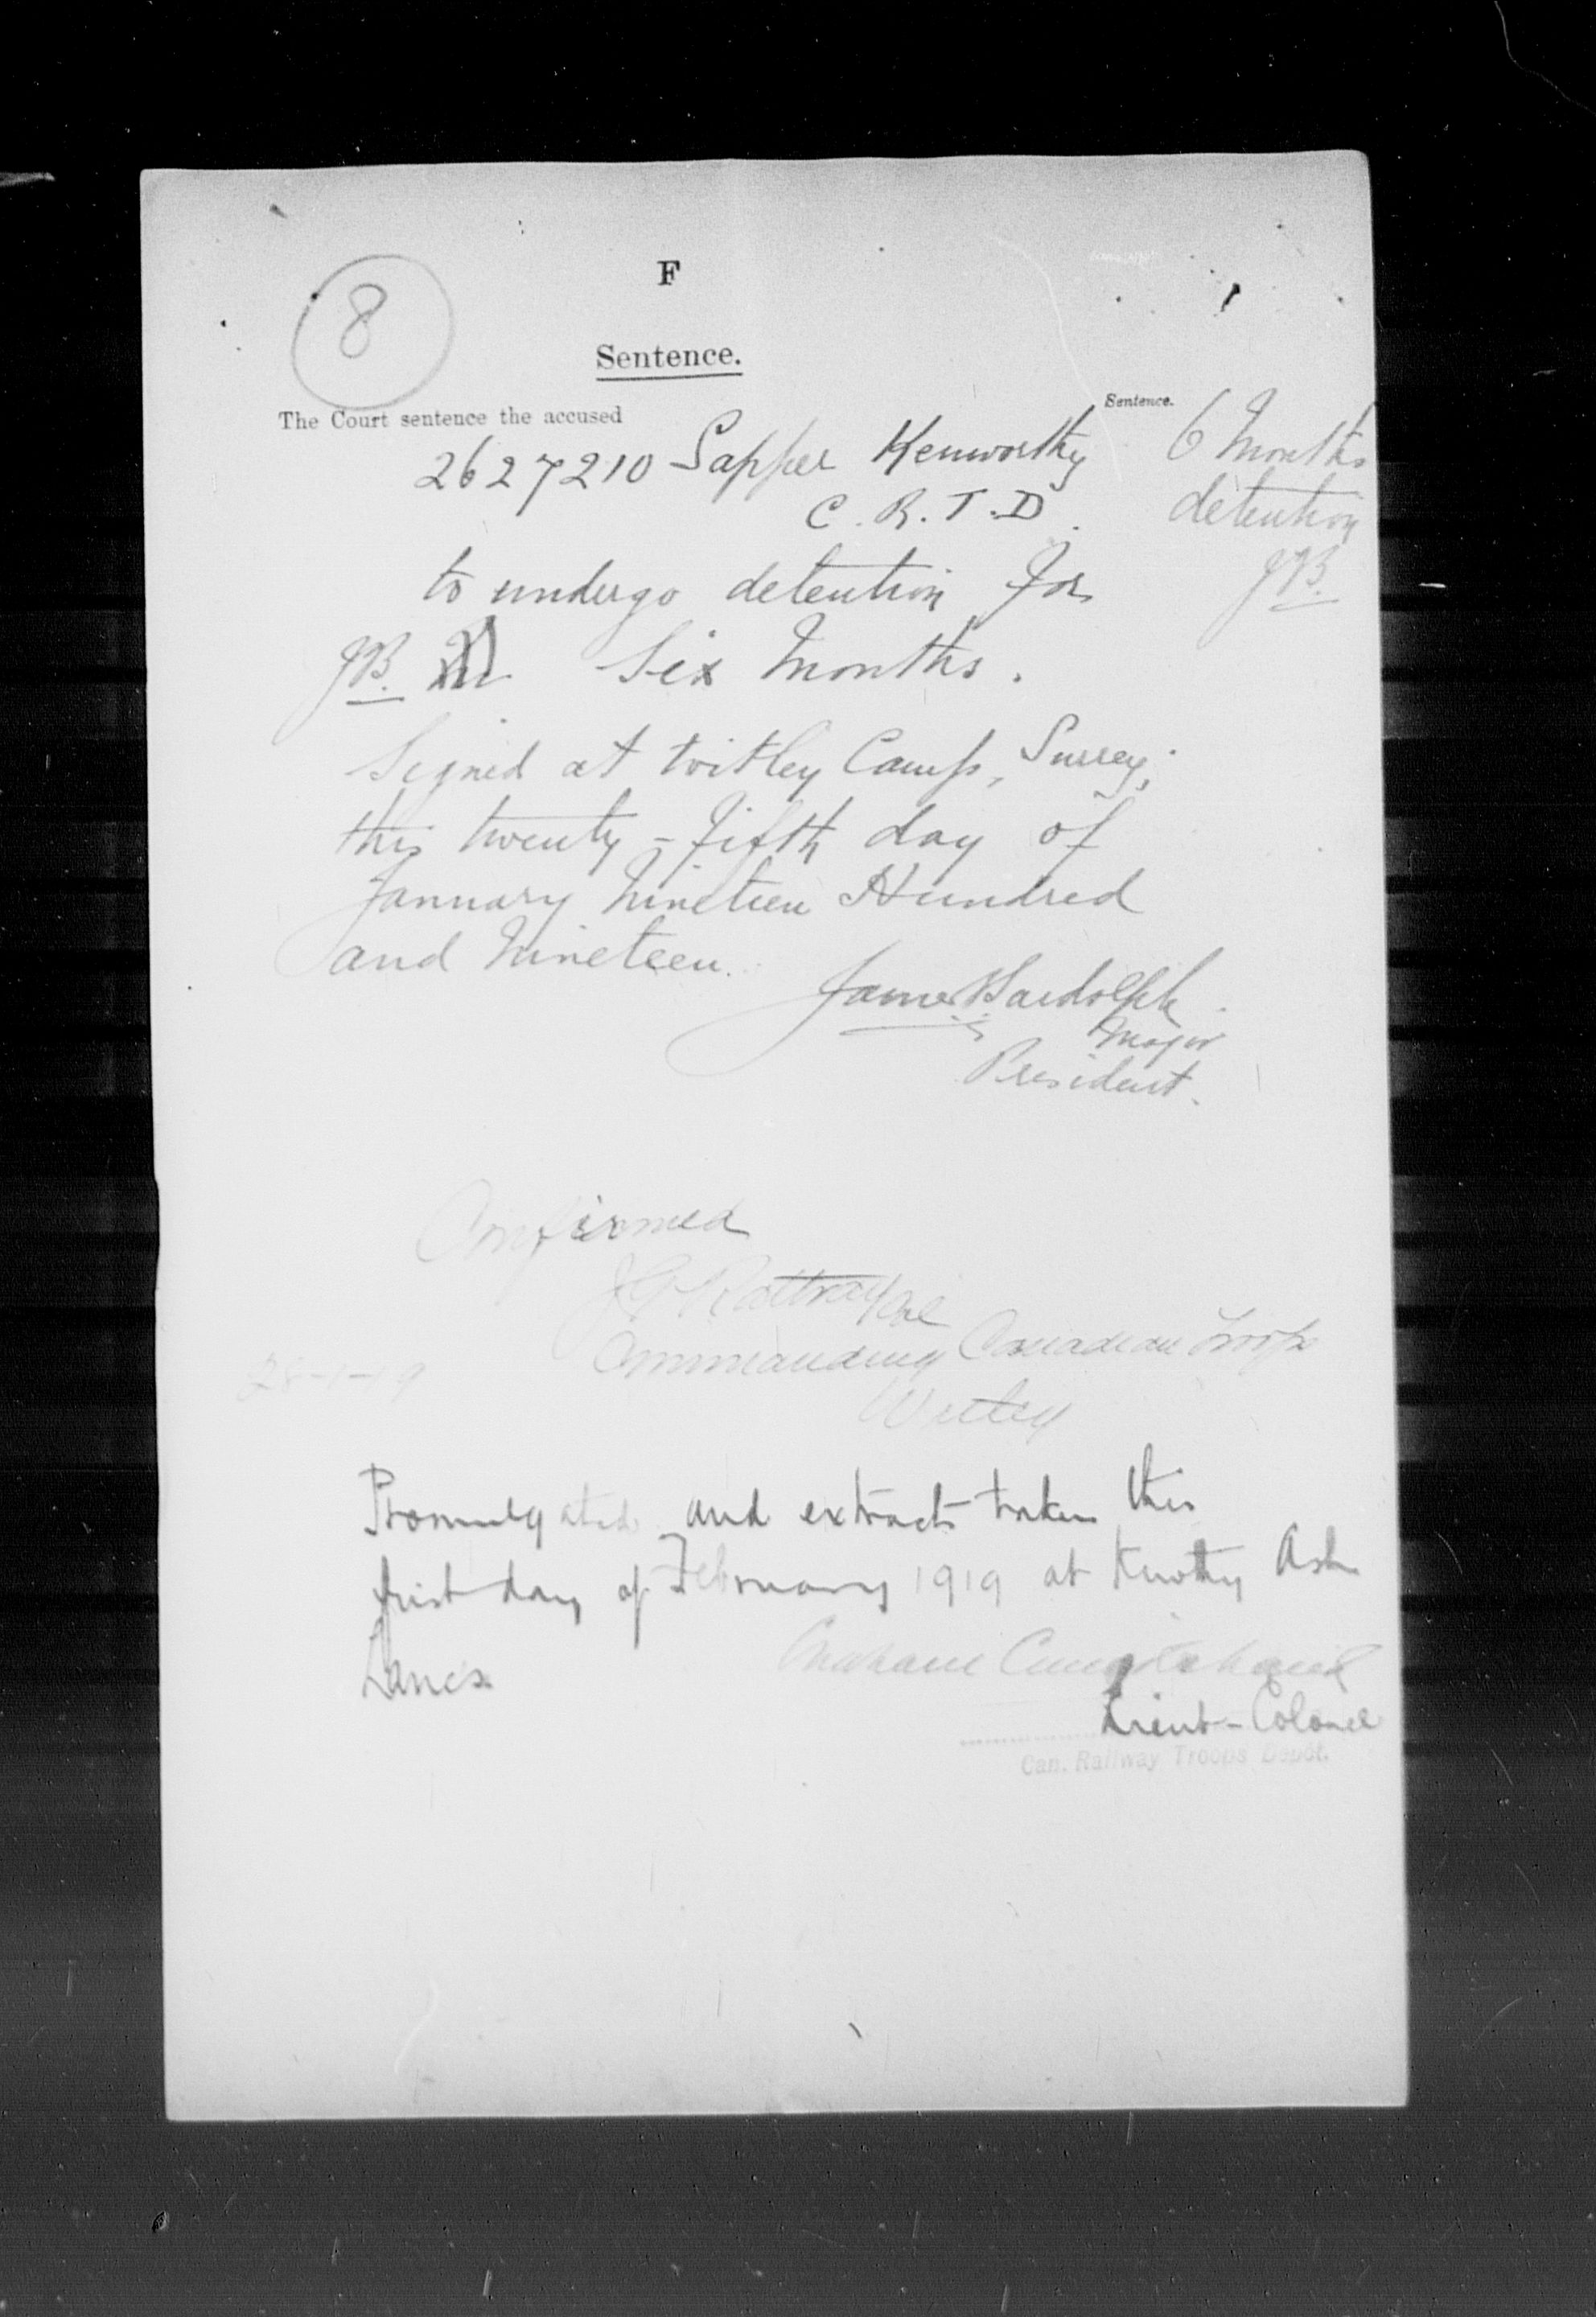 F
8
Sentence.
The Court sentence the accused
Sentence.
2627210 Sapper Kenworthy
6 Months
C. R. T. D.
detention
to undergo detention for
JB.
JB. Six Months.
Signed at Witley Camp, Surrey,
this twenty-fifth day of
January Nineteen Hundred
and Nineteen.
James
Major
President.
Confirmed
Col
Commanding Canadian Troops
28-1-19
Witley
Promulgated and extracts taken this
first day of February 1919 at Knotty Ash
Lancs
Lieut-Colonel
Can. Railway Troops Depôt.